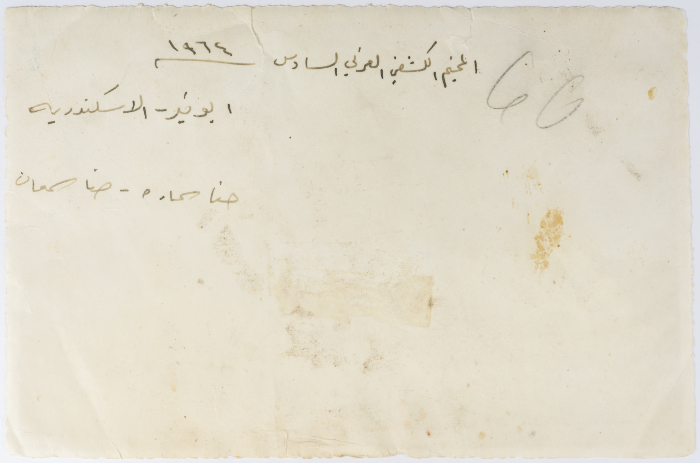 المخيم الكشفي العربي السادس ١٩٦٤
66
ابو قير - الاسكندريه
حنا سماره - حنا سمعان